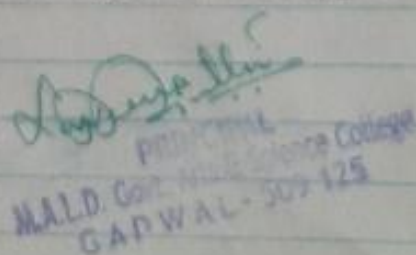 PRINCIPAL
M.A.L.D. Govt. Arts & Science College
GADWAL - 509 125